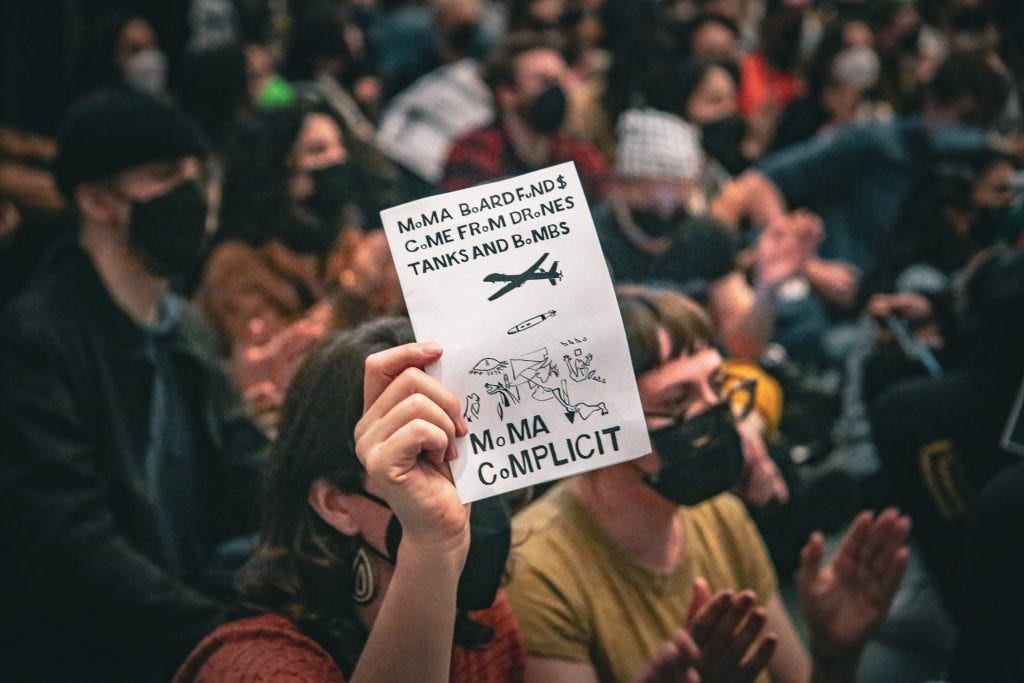 MoMA BoARD FuND$
CoME FRoM DRoNES
TANKS AND BoMBS
MoMA
CoMPLICIT